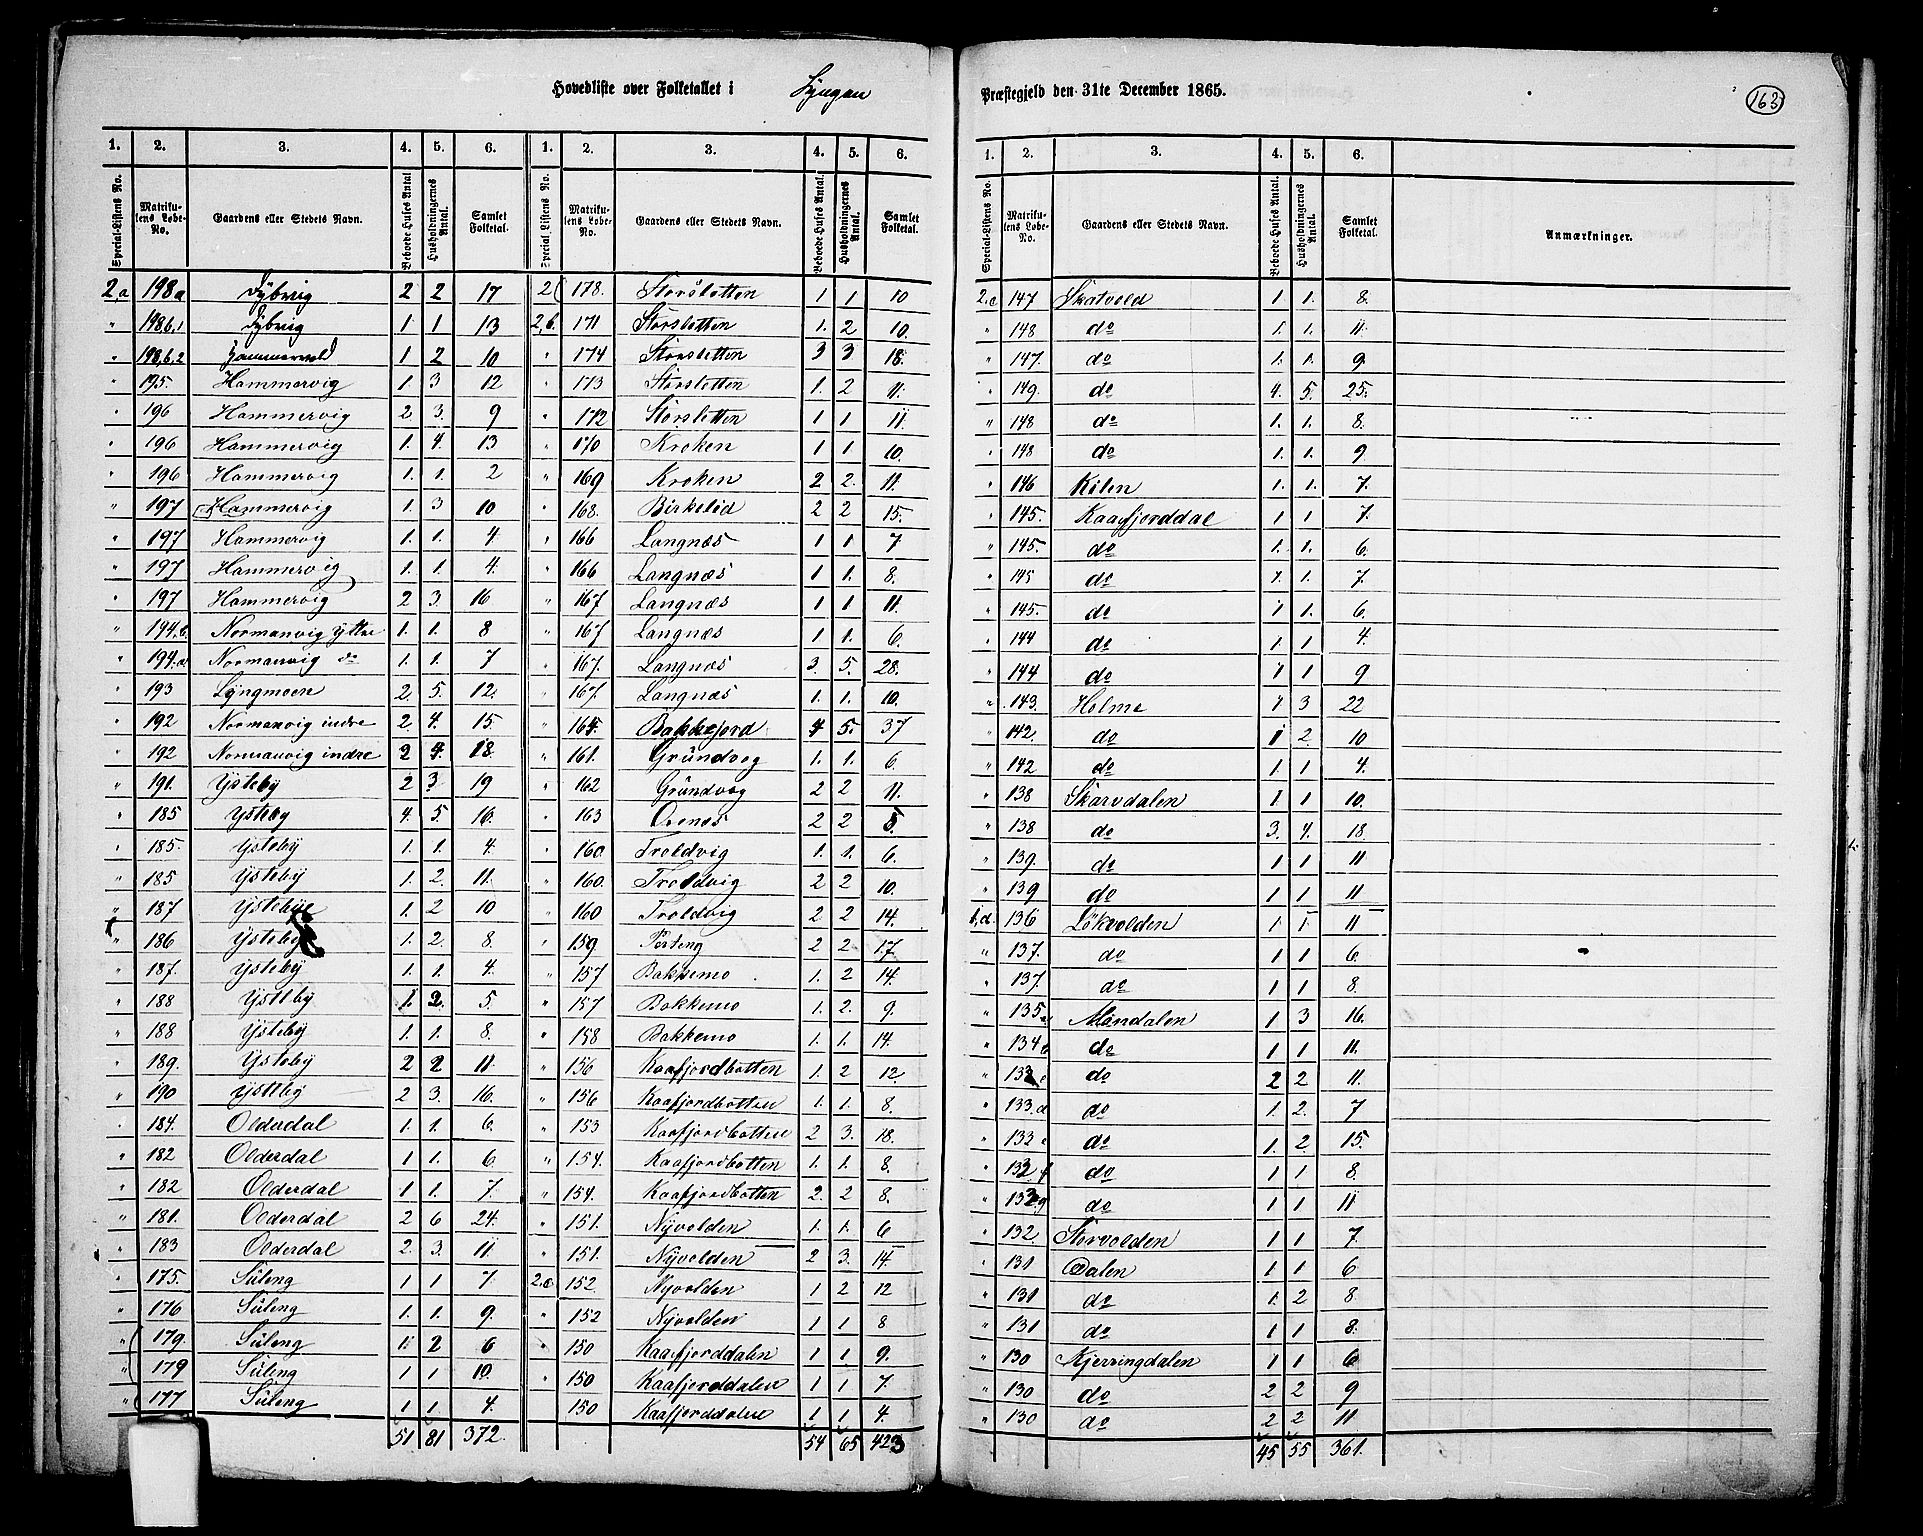 Hovedliste over Folketallet i Lyngen Præstegjeld den 31te December 1865.
163
1. 2. 3. 4. 5. 6. 1. 2. 3. 4. 5. 6.
Special-Listens No. Matrikulens Løbe-No. Gaardens eller Stedets Navn. Beboede Huses Antal. Husholdningernes Antal. Samlet Folketal. Special-Listens No. Matrikulens Løbe-No. Gaardens eller Stedets Navn. Beboede Huses Antal. Husholdningernes Antal. Samlet Folketal.
2a 198a Dybvig 2 2 17
" 198,b.1 Dybvig 1 1 13
" 198,b.2 Hammervold 1 2 10
" 195. Hammervig 1. 3 12
" 196 Hammervig 2. 3. 9
" 196 Hammervig 1. 4. 13
" 196 Hammervig 1. 1. 2
" 197 Hammervig 1. 3 10
" 197 Hammervig 1. 1. 4.
" 197 Hammervig 1. 1. 4.
" 197 Hammervig 2 3. 16
" 194.b. Normanvig Yttre 1. 1. 8
" 194.a Normanvig do 1. 1. 7
" 193 Lyngmoen 2. 5. 12.
" 192 Normanvig indre 2. 4. 15
" 192 Normanvig indre 2 4. 18.
" 191. Ysteby 2 3. 19
" 185 Ysteby 4. 5 16.
" 185. Ysteby 1. 1. 4
" 185 Ysteby 1. 2. 11.
" 187 Ysteby 1. 2 10
" 186 Ysteby 1. 2. 8.
" 187. Ysteby 1. 1. 4.
" 188 Ysteby 1. 2. 5.
" 188 Ysteby 1. 1. 8.
" 189. Ysteby 2 2 11
" 190 Ysteby 2 3. 16.
" 184. Olderdal 1. 1. 6.
" 182 Olderdal 1 1. 6
" 182 Olderdal 1 1. 7.
" 181. Olderdal 2 6 24.
" 183 Olderdal 2. 3. 11
" 175. Süleng 1 1 7
" 176 Süleng 1. 1. 9.
" 179. Süleng 1. 2 6
" 179 Süleng 1 1 10.
" 177 Süleng 1 1. 4.
51 81 372.
2 178. Storsletten 1 1 10
2,b. 171 Storsletten 1. 2 10.
" 174 Storsletten 3 3 18.
" 173 Storsletten 1. 2 11.
" 172 Storsletten 1 1 11.
" 170 Kroken 1 1 10.
" 169 Kroken 2 2. 11.
" 168. Birkelid 2 2 15.
" 166 Langnæs 1 1 7
" 166 Langnæs 1 1. 8.
" 167 Langnæs 1 1 11.
" 167 Langnæs 1 1. 6.
" 167. Langnæs 3. 5. 28.
" 167. Langnæs 1. 1. 10.
" 164. Bakkejord 4 5. 37
" 161. Gründvog 1. 1. 6.
" 162 Gründvog 2 2 11.
" 163 Ornes 2 2 5.
" 160. Troldvig 1. 1. 6.
" 160. Troldvig 2 2 10.
" 160 Troldvig 2 2 14.
" 159 Porteng 2 2. 17.
" 157 Bakkemo 1. 2 14.
" 157 Bakkemo 1. 2. 9.
" 158 Bakkemo 1. 1. 14.
" 156 Kaafjordbotten 1. 2 12.
" 156 Kaafjordbotten 1. 1. 8.
" 153 Kaafjordbotten 2 3. 18.
" 154. Kaafjordbotten 1. 1. 8.
" 154. Kaafjordbotten 2. 2 8.
" 151. Nyvolden 1. 1. 6
" 151. Nyvolden 2 3. 14.
2.c 152 Nyvolden 1 2 12
152 Nyvolden 1 1 8
150 Kaafjorddalen 1 1 9.
150 Kaafjorddalen 1 1 7.
150 Kaafjorddalen 1 1 4.
54 65 423
1. 2. 3. 4. 5. 6.
Special-Listens No. Matrikulens Løbe-No. Gaardens eller Stedets Navn. Beboede Huses Antal. Husholdningernes Antal. Samlet Folketal. Anmærkninger.
2.c 147 Skatvold 1 1. 8.
" 148 do 1. 1. 11.
" 147. do 1. 1. 9.
" 149. do 4. 5. 25.
" 148 do 1. 1. 8.
" 148 do 1. 1. 9
" 146 Kilen 1. 1. 7.
" 145. Kaafjorddal 1 1 7.
" 145. do 1. 1. 6.
" 145 do 1. 1. 7.
" 145. do 1 1 6.
" 144 do 1 1 4.
" 144 do 1 1 9
" 143. Holme 1 3 22
" 142. do 1 2. 10
" 142 do 1 1 4.
" 138 Skarvdalen 1 1 10.
" 138 do 3. 4. 18.
" 139. do 1 1 11
" 139 do 1 1 11
b,d. 136 Lökvolden 1 1 11
" 137. do 1 1 6
" 137. do 1 1 8.
" 135 Mandalen 1 3 16.
" 134 do 1 1 11.
" 133 do 2 2 11.
" 133.d do 1. 2. 7
" 133 do 1. 2 15.
" 132 f do 1 1 8.
" 132 g do 1 1 11
" 132. Storvolden 1 1 7.
" 131 Dalen 1 1 6
" 131 do 1. 2 8.
" 131 do 1 1 8.
" 130 Kjerringdalen 1 1 6
" 130 do 2 2 9
" 130 do 2 2 11
45 55 361.